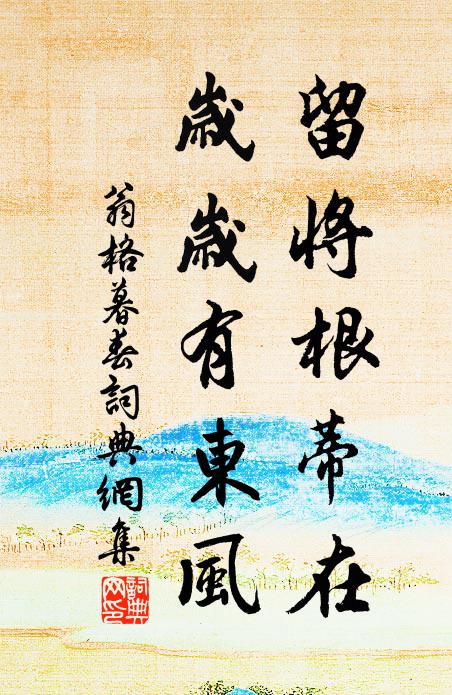 留將根蒂在
歲歲有東風
翁格暮春詞典網集
詞典網印